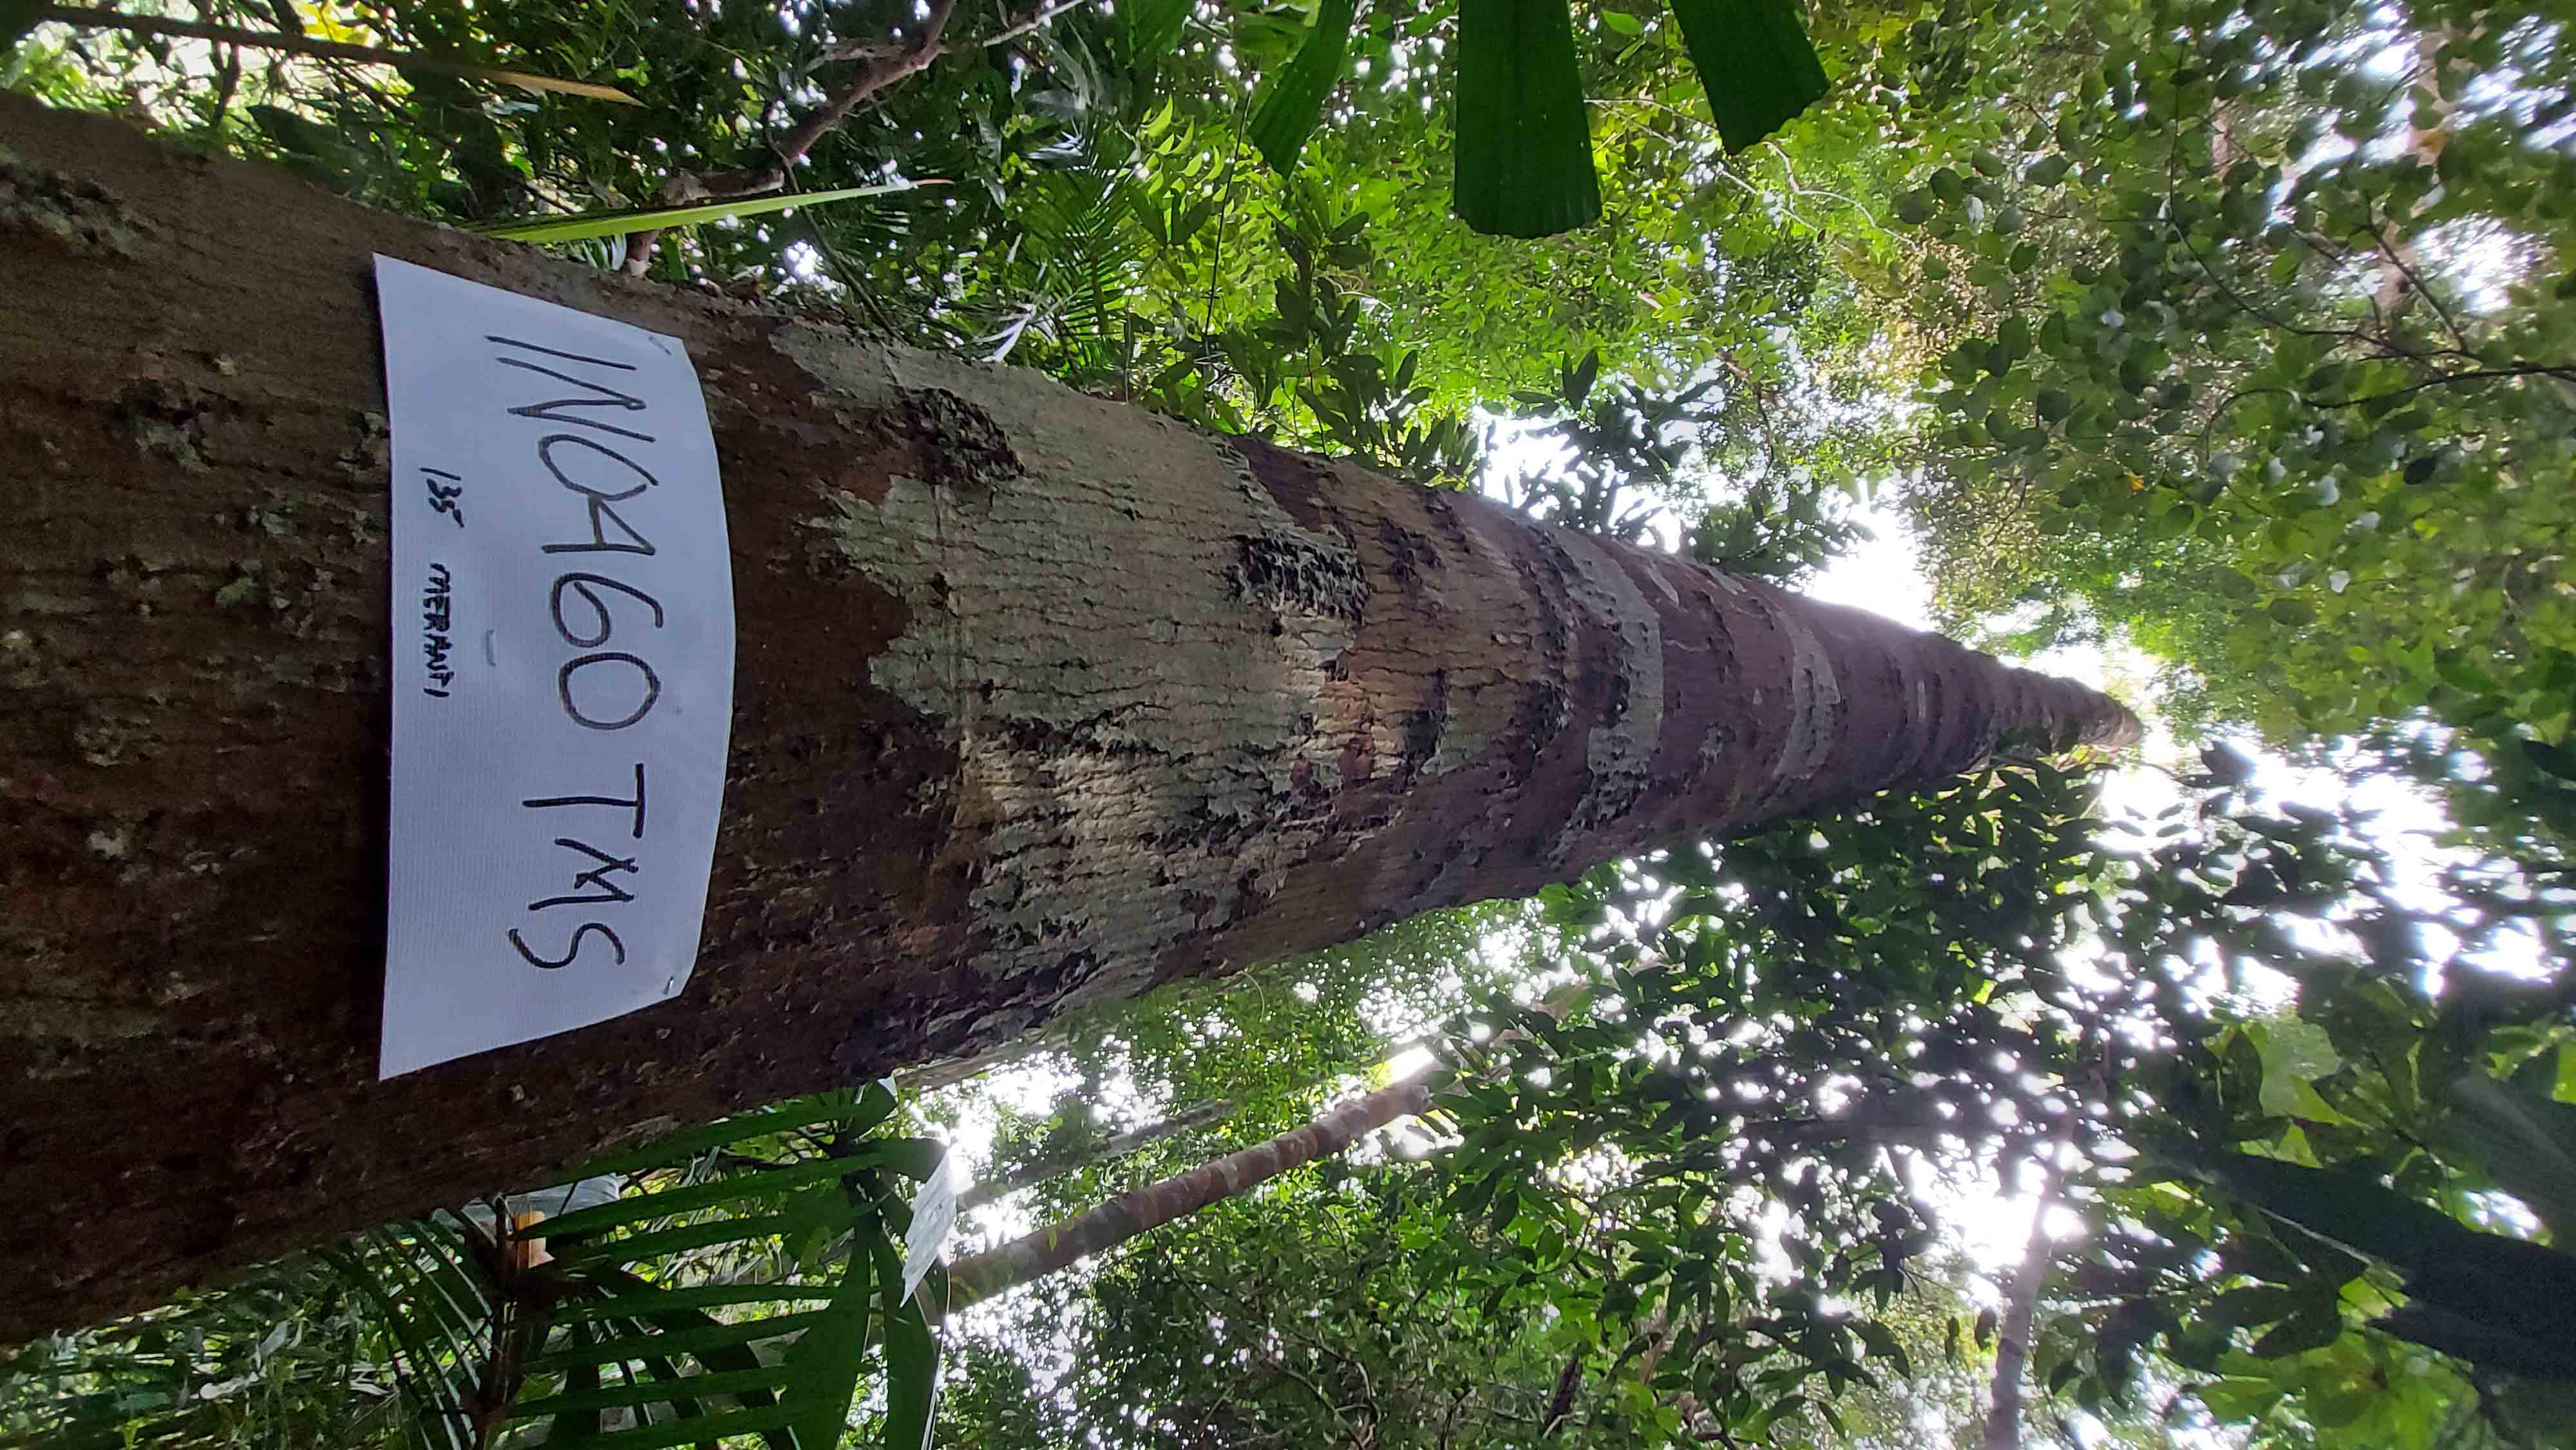 IN0460 TMS
135 MERANTI